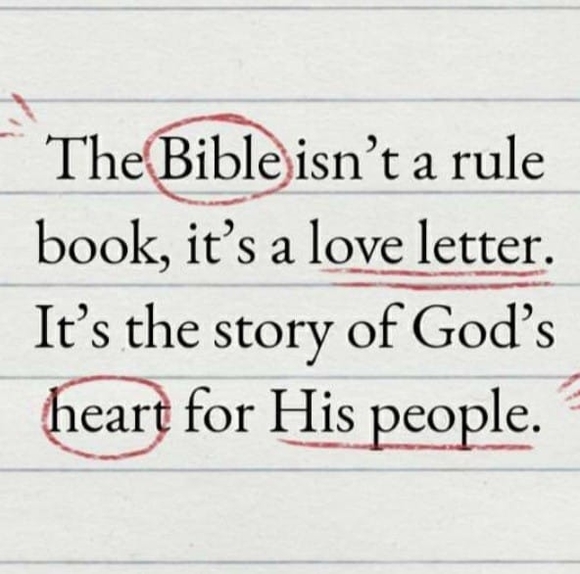 The Bible isn’t a rule
book, it’s a love letter.
It’s the story of God’s
heart for His people.